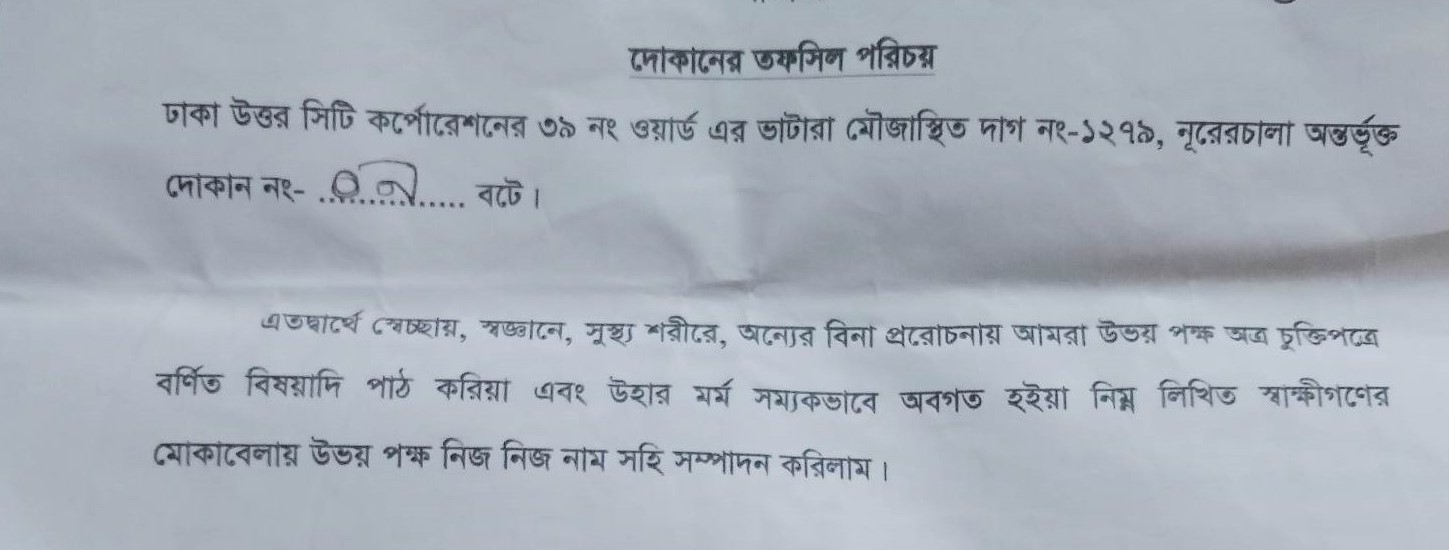 দোকানের তফসিল পরিচয়
ঢাকা উত্তর সিটি কর্পোরেশনের ৩৯ নং ওয়ার্ড এর ভাটারা মৌজাস্থিত দাগ নং-১২৭৯, নূরেরচালা অন্তর্ভূক্ত
দোকান নং- .............. বটে।
এতদ্বার্থে স্বেচ্ছায়, স্বজ্ঞানে, সূস্থ্য শরীরে, অন্যের বিনা প্ররোচনায় আমরা উভয় পক্ষ অত্র চুক্তিপত্রে
বর্ণিত বিষয়াদি পাঠ করিয়া এবং উহার মর্ম সম্যকভাবে অবগত হইয়া নিম্ন লিখিত স্বাক্ষীগণের
মোকাবেলায় উভয় পক্ষ নিজ নিজ নাম সহি সম্পাদন করিলাম।